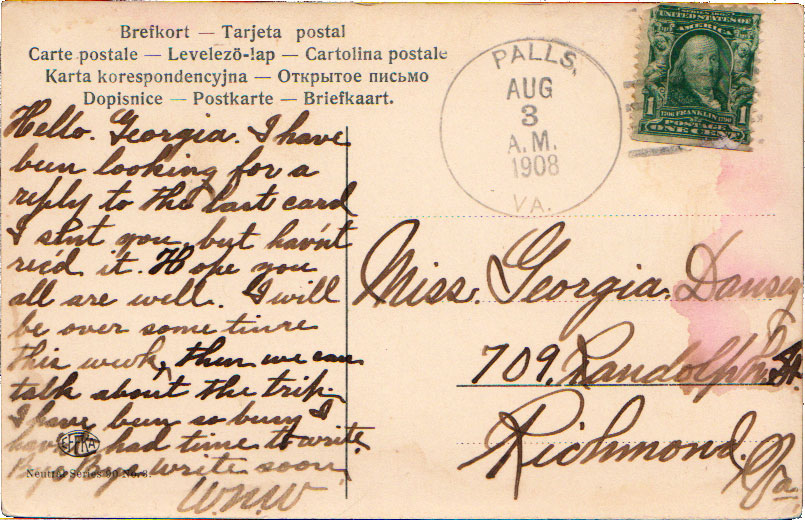 Brefkort — Tarjeta postal
Carte postale — Levelező-lap — Cartolina postale
Karta korespondencyjna — Открытое письмо
Dopisnice — Postkarte — Briefkaart.
Hello. Georgia. I have
been looking for a
reply to the last card
I sent you, but hav'nt
rec'd it. Hope you
all are well. I will
be over some time
this week, then we can
talk about the trip.
I have been so busy I
haven't had time to write.
write soon
W.N.W
SEEKA
Neutral Series 90 No. 3.
PALLS,
AUG
3
A.M.
1908
VA.
UNITED STATES OF
AMERICA
1 1
1706 FRANKLIN 1790
POSTAGE
ONE CENT
Miss. Georgia. Dansey
709. Randolph. St.
Richmond.
Va